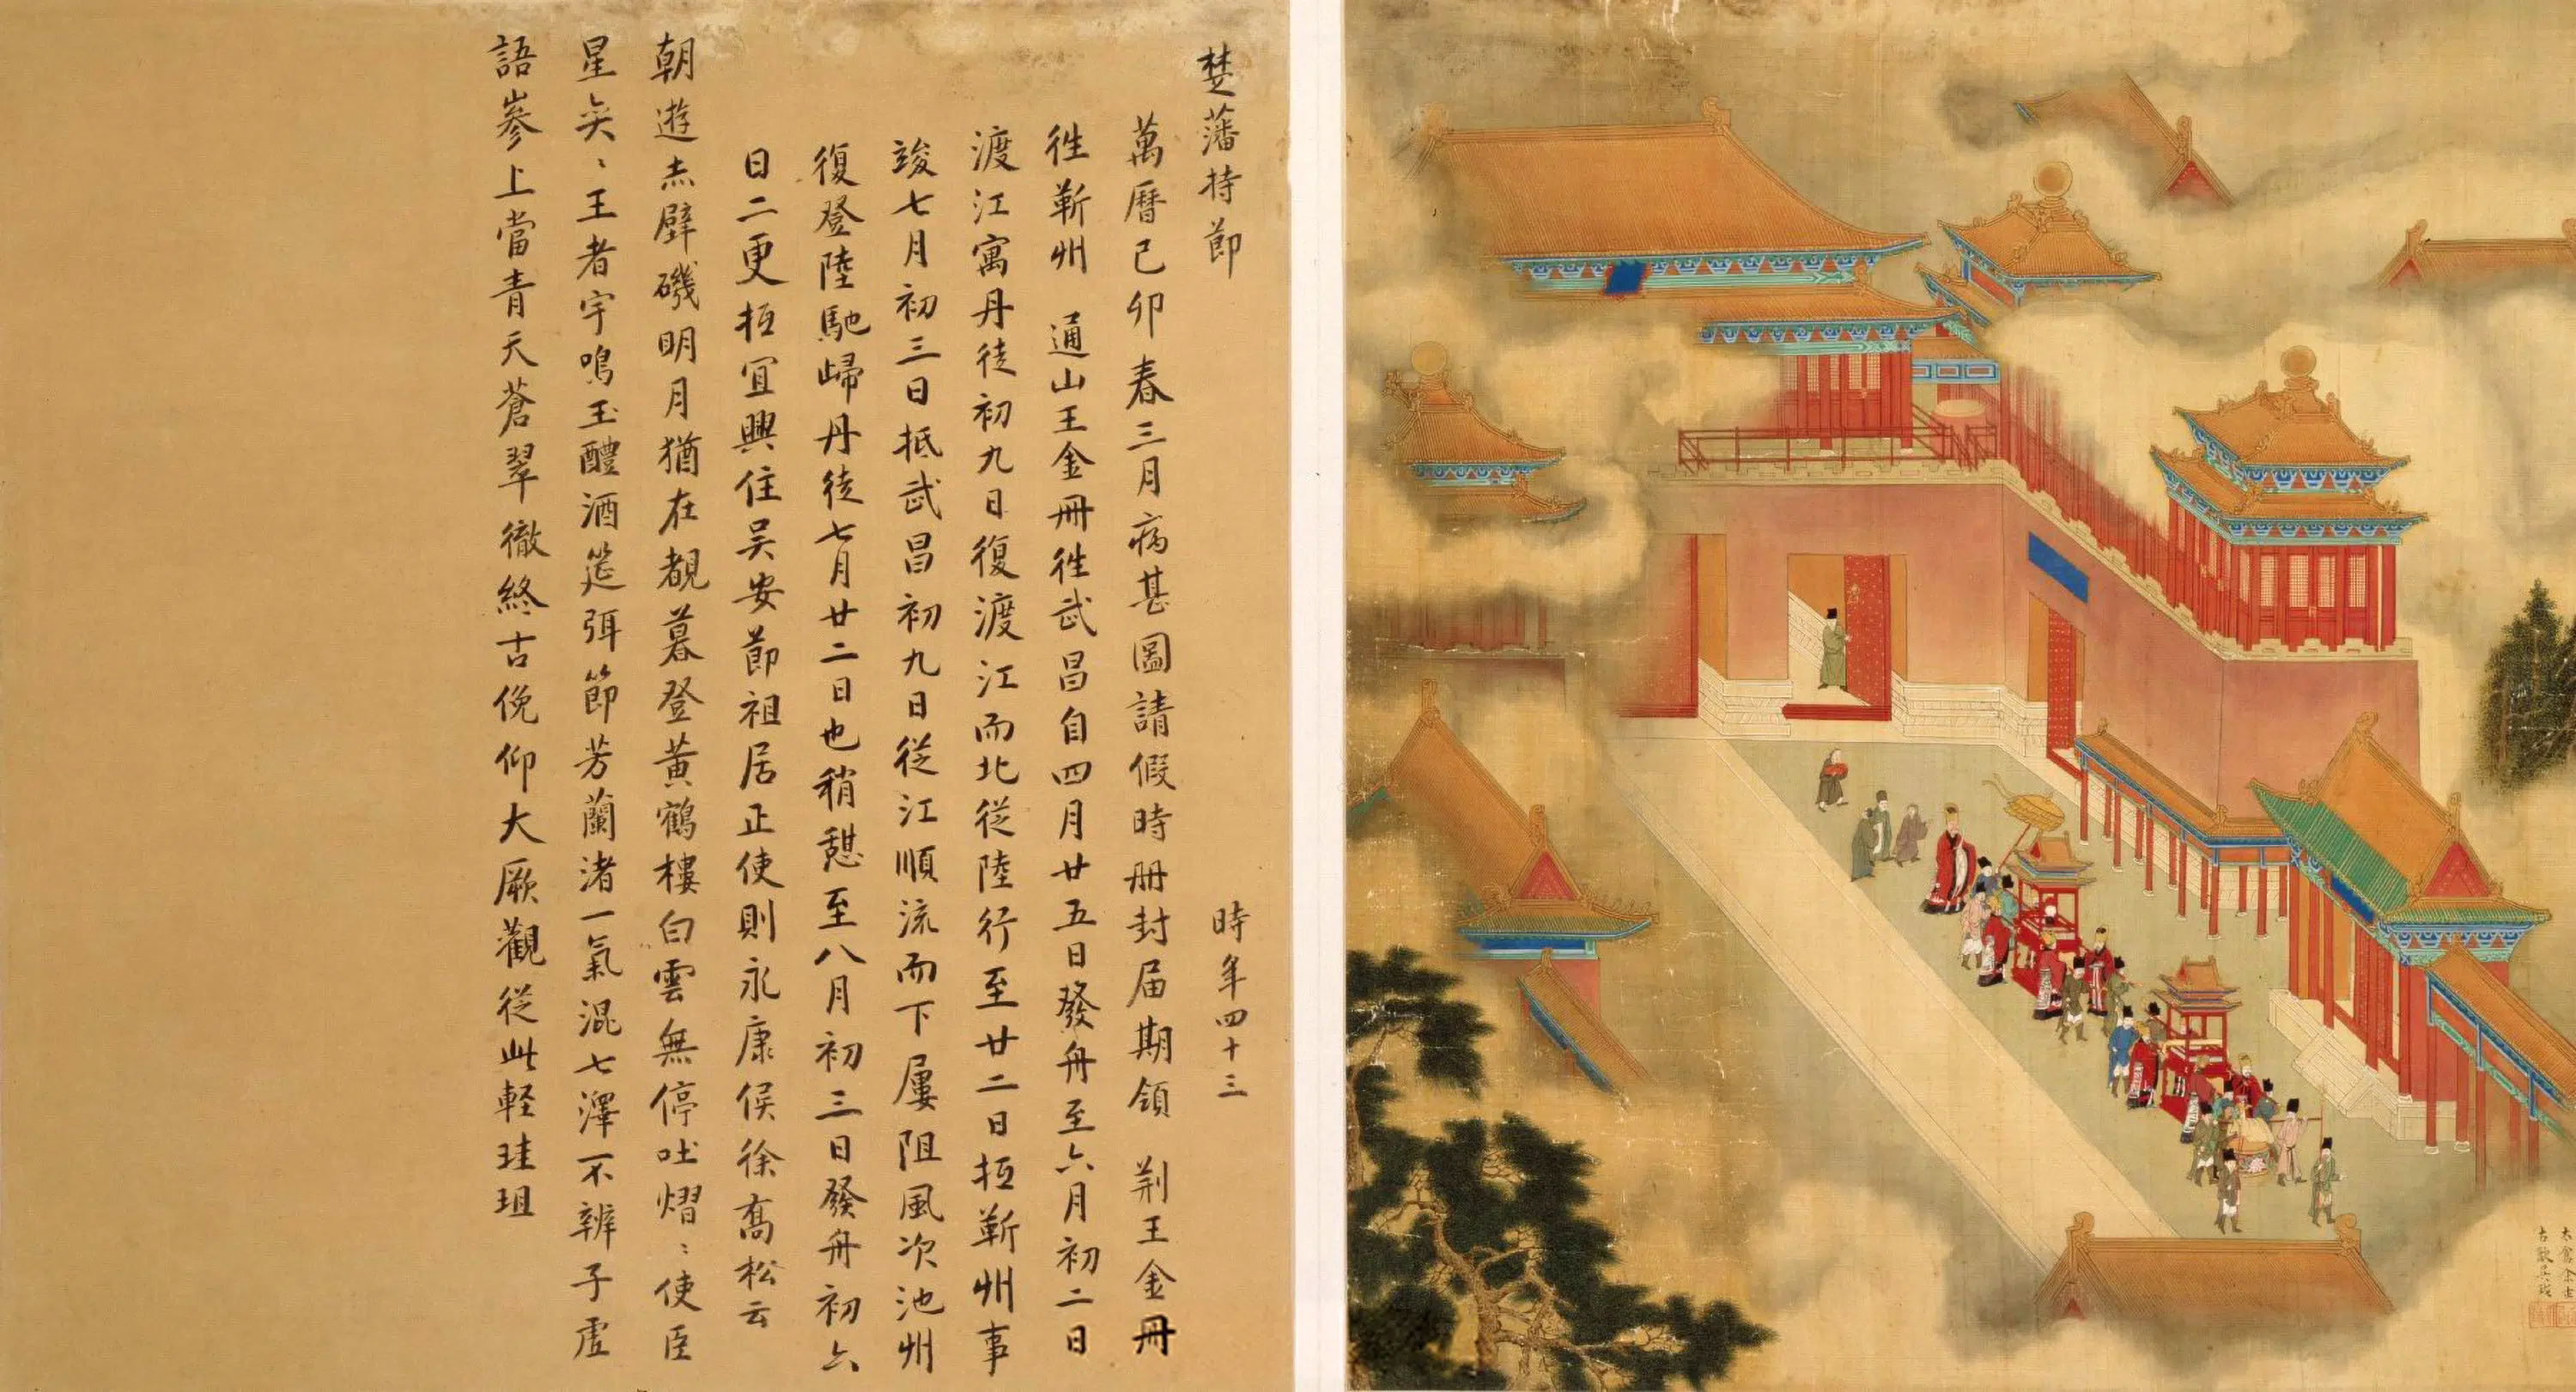 楚藩持節 時年四十三
萬曆己卯春三月病甚圖請假時冊封届期領 荆王金冊
徃蘄州 通山王金冊徃武昌自四月廿五日發舟至六月初二日
渡江寓丹徒初九日復渡江而北從陸行至廿二日抵蘄州事
竣七月初三日抵武昌初九日從江順流而下屢阻風次池州
復登陸馳歸丹徒七月廿二日也稍憩至八月初三日發舟初六
日二更抵宜興住吴安節祖居正使則永康侯徐喬松云
朝遊赤壁磯明月猶在覩暮登黄鶴樓白雲無停吐熠〻使臣
星奕〻王者宇鳴玉醴酒筵弭節芳蘭渚一氣混七澤不辨子虛
語參上當青天蒼翠徹終古俛仰大厥觀從此輕珪珇
太倉余士
古歙吴鉞